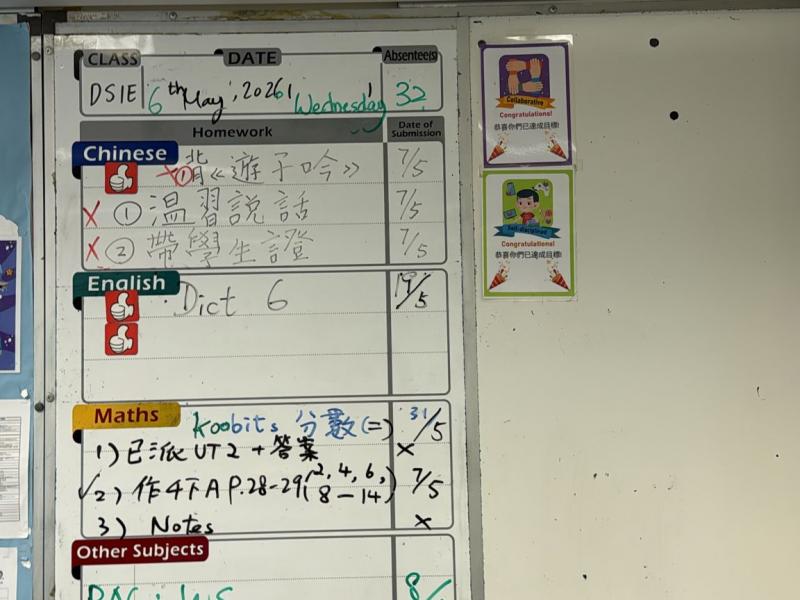 CLASS DATE Absentee(s)
DSIE 6th May, 2026, Wednesday 32
Homework Date of Submission
Chinese
① 背《遊子吟》 7/5
① 溫習說話 7/5
② 帶學生證 7/5
English
Dict 6 19/5
Maths
Koobits 分數(二) 31/5
1) 已派 UT 2 + 答案 ×
✓2) 作4下A P.28-29(2, 4, 6, 8-14) 7/5
3) Notes ×
Other Subjects
8/
Collaborative
Congratulations!
恭喜你們已達成目標!
Self-disciplined
Congratulations!
恭喜你們已達成目標!